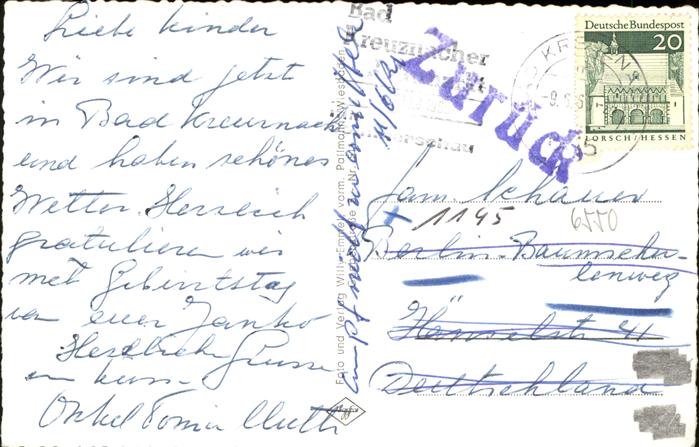 Liebe Kinder
Wir sind jetzt
in Bad Kreuznach
und haben schönes
Wetter. Herzlich
gratulieren wir
met Geburtstag
von euer Janko
Herzliche Grüsse
en kuss-
Onkel Tomia
Foto und Verlag Willy Emrete vorm. Pallmann, Wiesbaden
nicht zu ermitteln
Bad
Kreuznacher
Zurück
Deutsche Bundespost
20
LORSCH/HESSEN
Fam. Schauer
+ 1195
6550
Berlin-Baumschu-
lenweg
Hänselstr 41
Deutschland